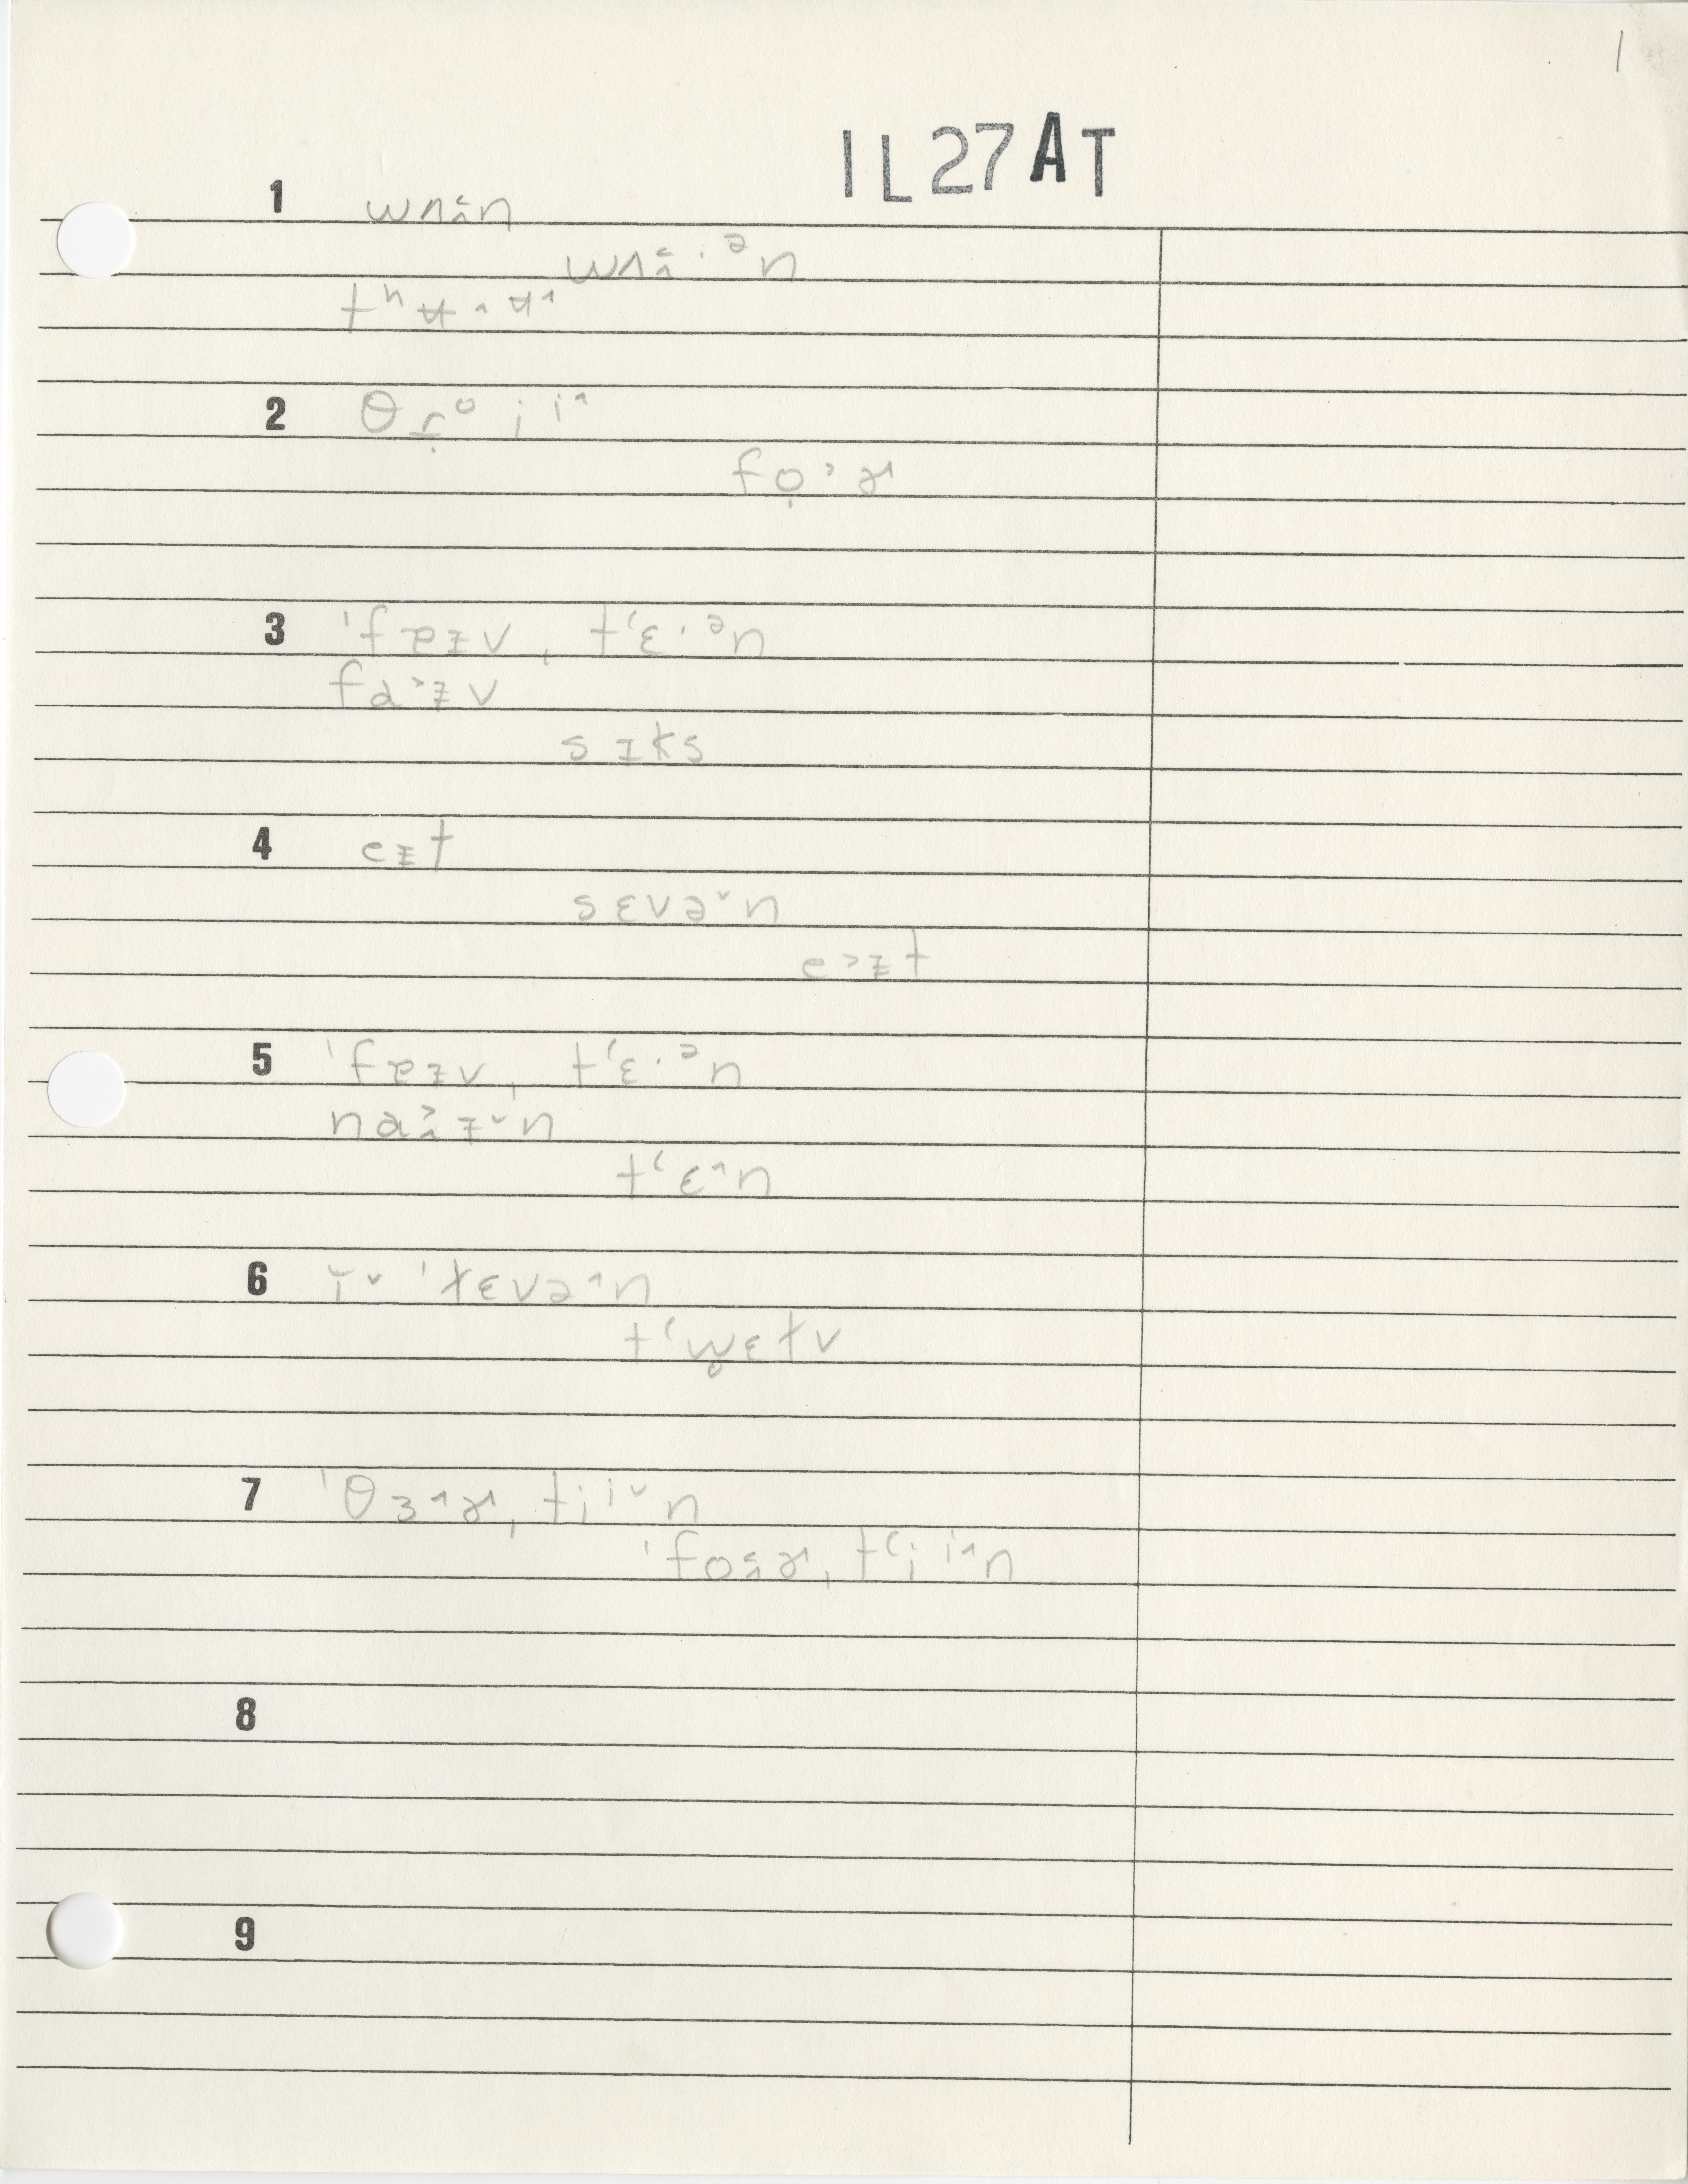 1
IL27AT
1 wʌ˂̂n
wʌ˂̂·ᵊn
tʰʉ˄·ʉ˄
2 θɾ̣̊i i˄
fọ˃·ɚ
3 ˈfɐɪvˌtʻɛ·ᵊn
fa˃ɪv
sɪks
4 eɪt
sɛvə˅n
e˃ɪt
5 ˈfɐɪvˌtʻɛ·ᵊn
naɪ˅n
tʻɛ˄n
6 ɪ˅ˈlɛvə˄n
tʻw̥ɛlv
7 ˈθɜ˄ɚˌtii˅n
ˈfoɚˌtʻii˄n
8
9